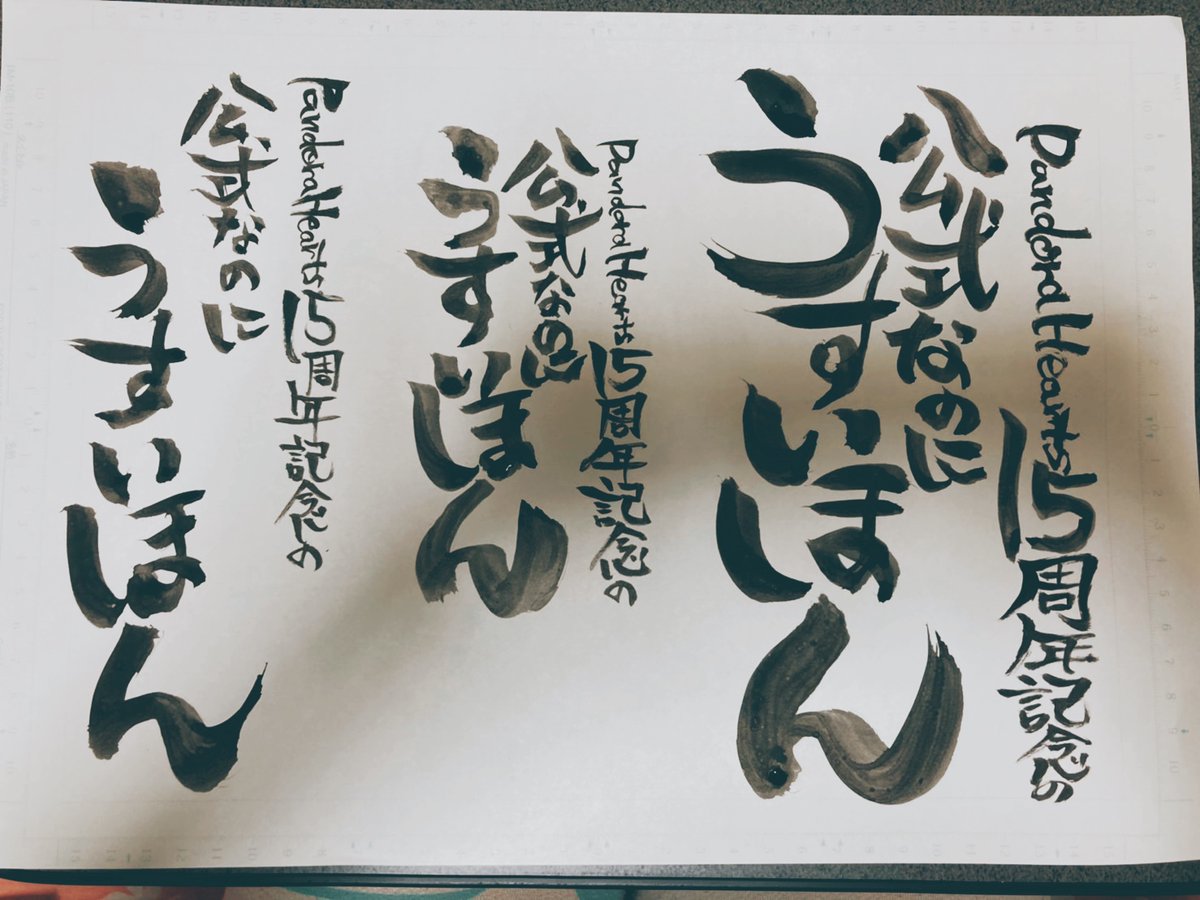 PandoraHearts15周年記念の
公式なのに
うすいほん
PandoraHearts15周年記念の
公式なのに
うすいほん
PandoraHearts15周年記念の
公式なのに
うすいほん